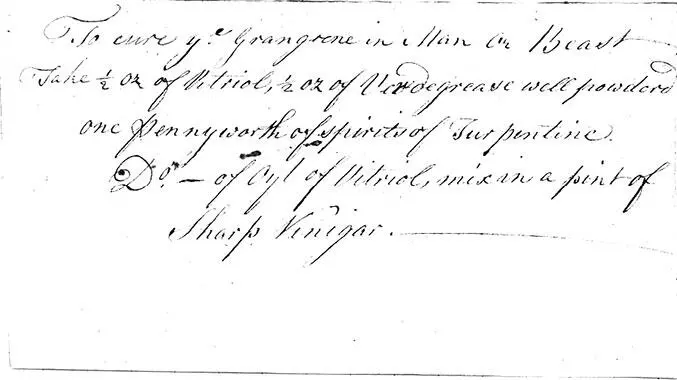 To cure yᵉ Grangrene in Man Or Beast
Take ½ oz of Vitriol, ½ oz of Verdegrease well powderd
one pennyworth of spirits of Turpentine.
Dᵒ. — of Oyl of Vitriol, mix in a pint of
Sharp Vinigar.